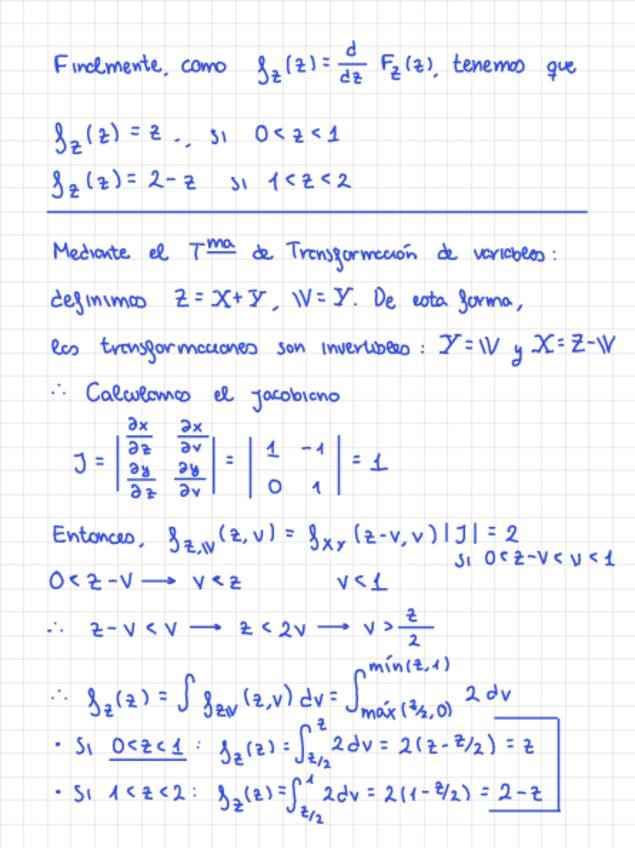 Finalmente, como f_Z(z) = d/dz F_Z(z), tenemos que
f_Z(z) = z ., si 0 < z < 1
f_Z(z) = 2 - z si 1 < z < 2
Mediante el Tma de Transformación de variables:
definimos Z = X + Y, W = Y. De esta forma,
las transformaciones son invertibles: Y = W y X = Z - W
∴ Calculamos el jacobiano
J = | ∂x/∂z ∂x/∂v ; ∂y/∂z ∂y/∂v | = | 1 -1 ; 0 1 | = 1
Entonces, f_{Z,W}(z,v) = f_{XY}(z-v,v) |J| = 2
si 0 < z-v < v < 1
0 < z-v → v < z v < 1
∴ z-v < v → z < 2v → v > z/2
∴ f_Z(z) = ∫ f_{ZW}(z,v) dv = ∫_{máx(z/2,0)}^{mín(z,1)} 2 dv
• Si 0<z<1 : f_Z(z) = ∫_{z/2}^{z} 2 dv = 2(z - z/2) = z
• Si 1<z<2 : f_Z(z) = ∫_{z/2}^{1} 2 dv = 2(1 - z/2) = 2 - z